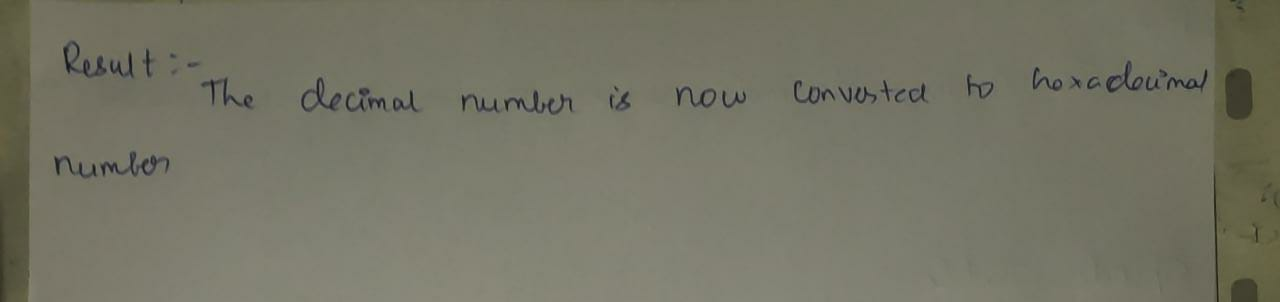 Result :-
The decimal number is now converted to hexadecimal
number